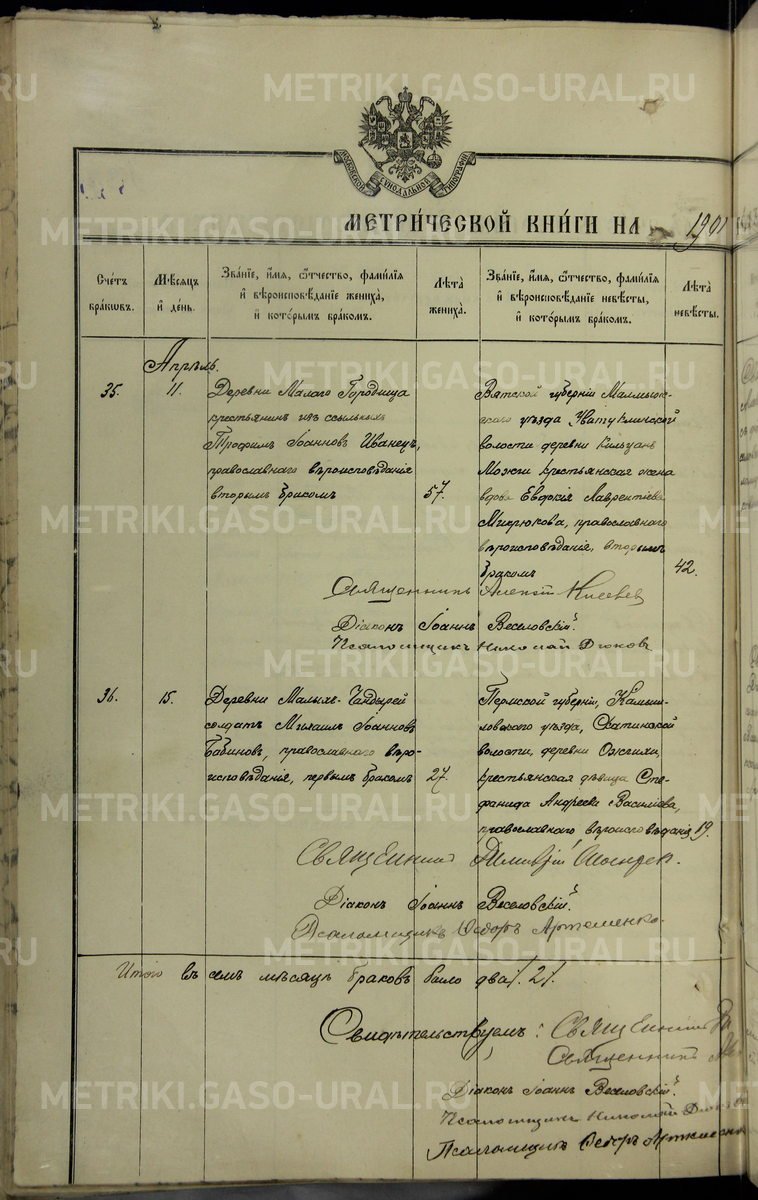 METRIKI.GASO-URAL.RU
МОСКОВСКОЙ СѴНОДАЛЬНОЙ ТИПОГРАФІИ
МЕТРИ́ЧЕСКОЙ КНИ́ГИ НА 1901
Счетъ бракѡвъ.
Мѣсяцъ и день.
Званіе, имя, ѻтчество, фамилія
и вѣроисповѣданіе жениха,
и которымъ бракомъ.
Лѣта жениха.
Званіе, имя, ѻтчество, фамилія
и вѣроисповѣданіе невѣсты,
и которымъ бракомъ.
Лѣта невѣсты.
Апрѣль.
35.
11.
Деревни Малаго Городища
крестьянинъ изъ ссыльныхъ
Трофимъ Іоанновъ Иванецъ,
православнаго вѣроисповѣданія
вторымъ бракомъ
57.
Вятской губерніи Малмыж-
скаго уѣзда
волости деревни
Можги крестьянская жена
вдова Евдокія Лаврентіева
Микрюкова, православнаго
вѣроисповѣданія, вторымъ
бракомъ
42.
Священникъ Алексій Кисевев
Діаконъ Іоаннъ Веселовскій.
Псаломщикъ Николай
36.
15.
Деревни Малыхъ-Чандырей
солдатъ Михаилъ Іоанновъ
Бабиновъ, православнаго вѣро-
исповѣданія, первымъ бракомъ
27.
Пермской губерніи, Камыш-
ловскаго уѣзда,
волости, деревни
крестьянская дѣвица Сте-
фанида Андреева Василіева,
православнаго вѣроисповѣданія
19.
Священникъ Димитрій
Діаконъ Іоаннъ Веселовскій.
Псаломщикъ Ѳедоръ Артеменко.
Итого въ семъ мѣсяцѣ браковъ было два /. 2 /.
Свидѣтельствуемъ: Священникъ
Священникъ
Діаконъ Іоаннъ Веселовскій.
Псаломщикъ Николай
Псаломщикъ Ѳедоръ